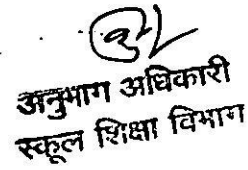 अनुभाग अधिकारी
स्कूल शिक्षा विभाग